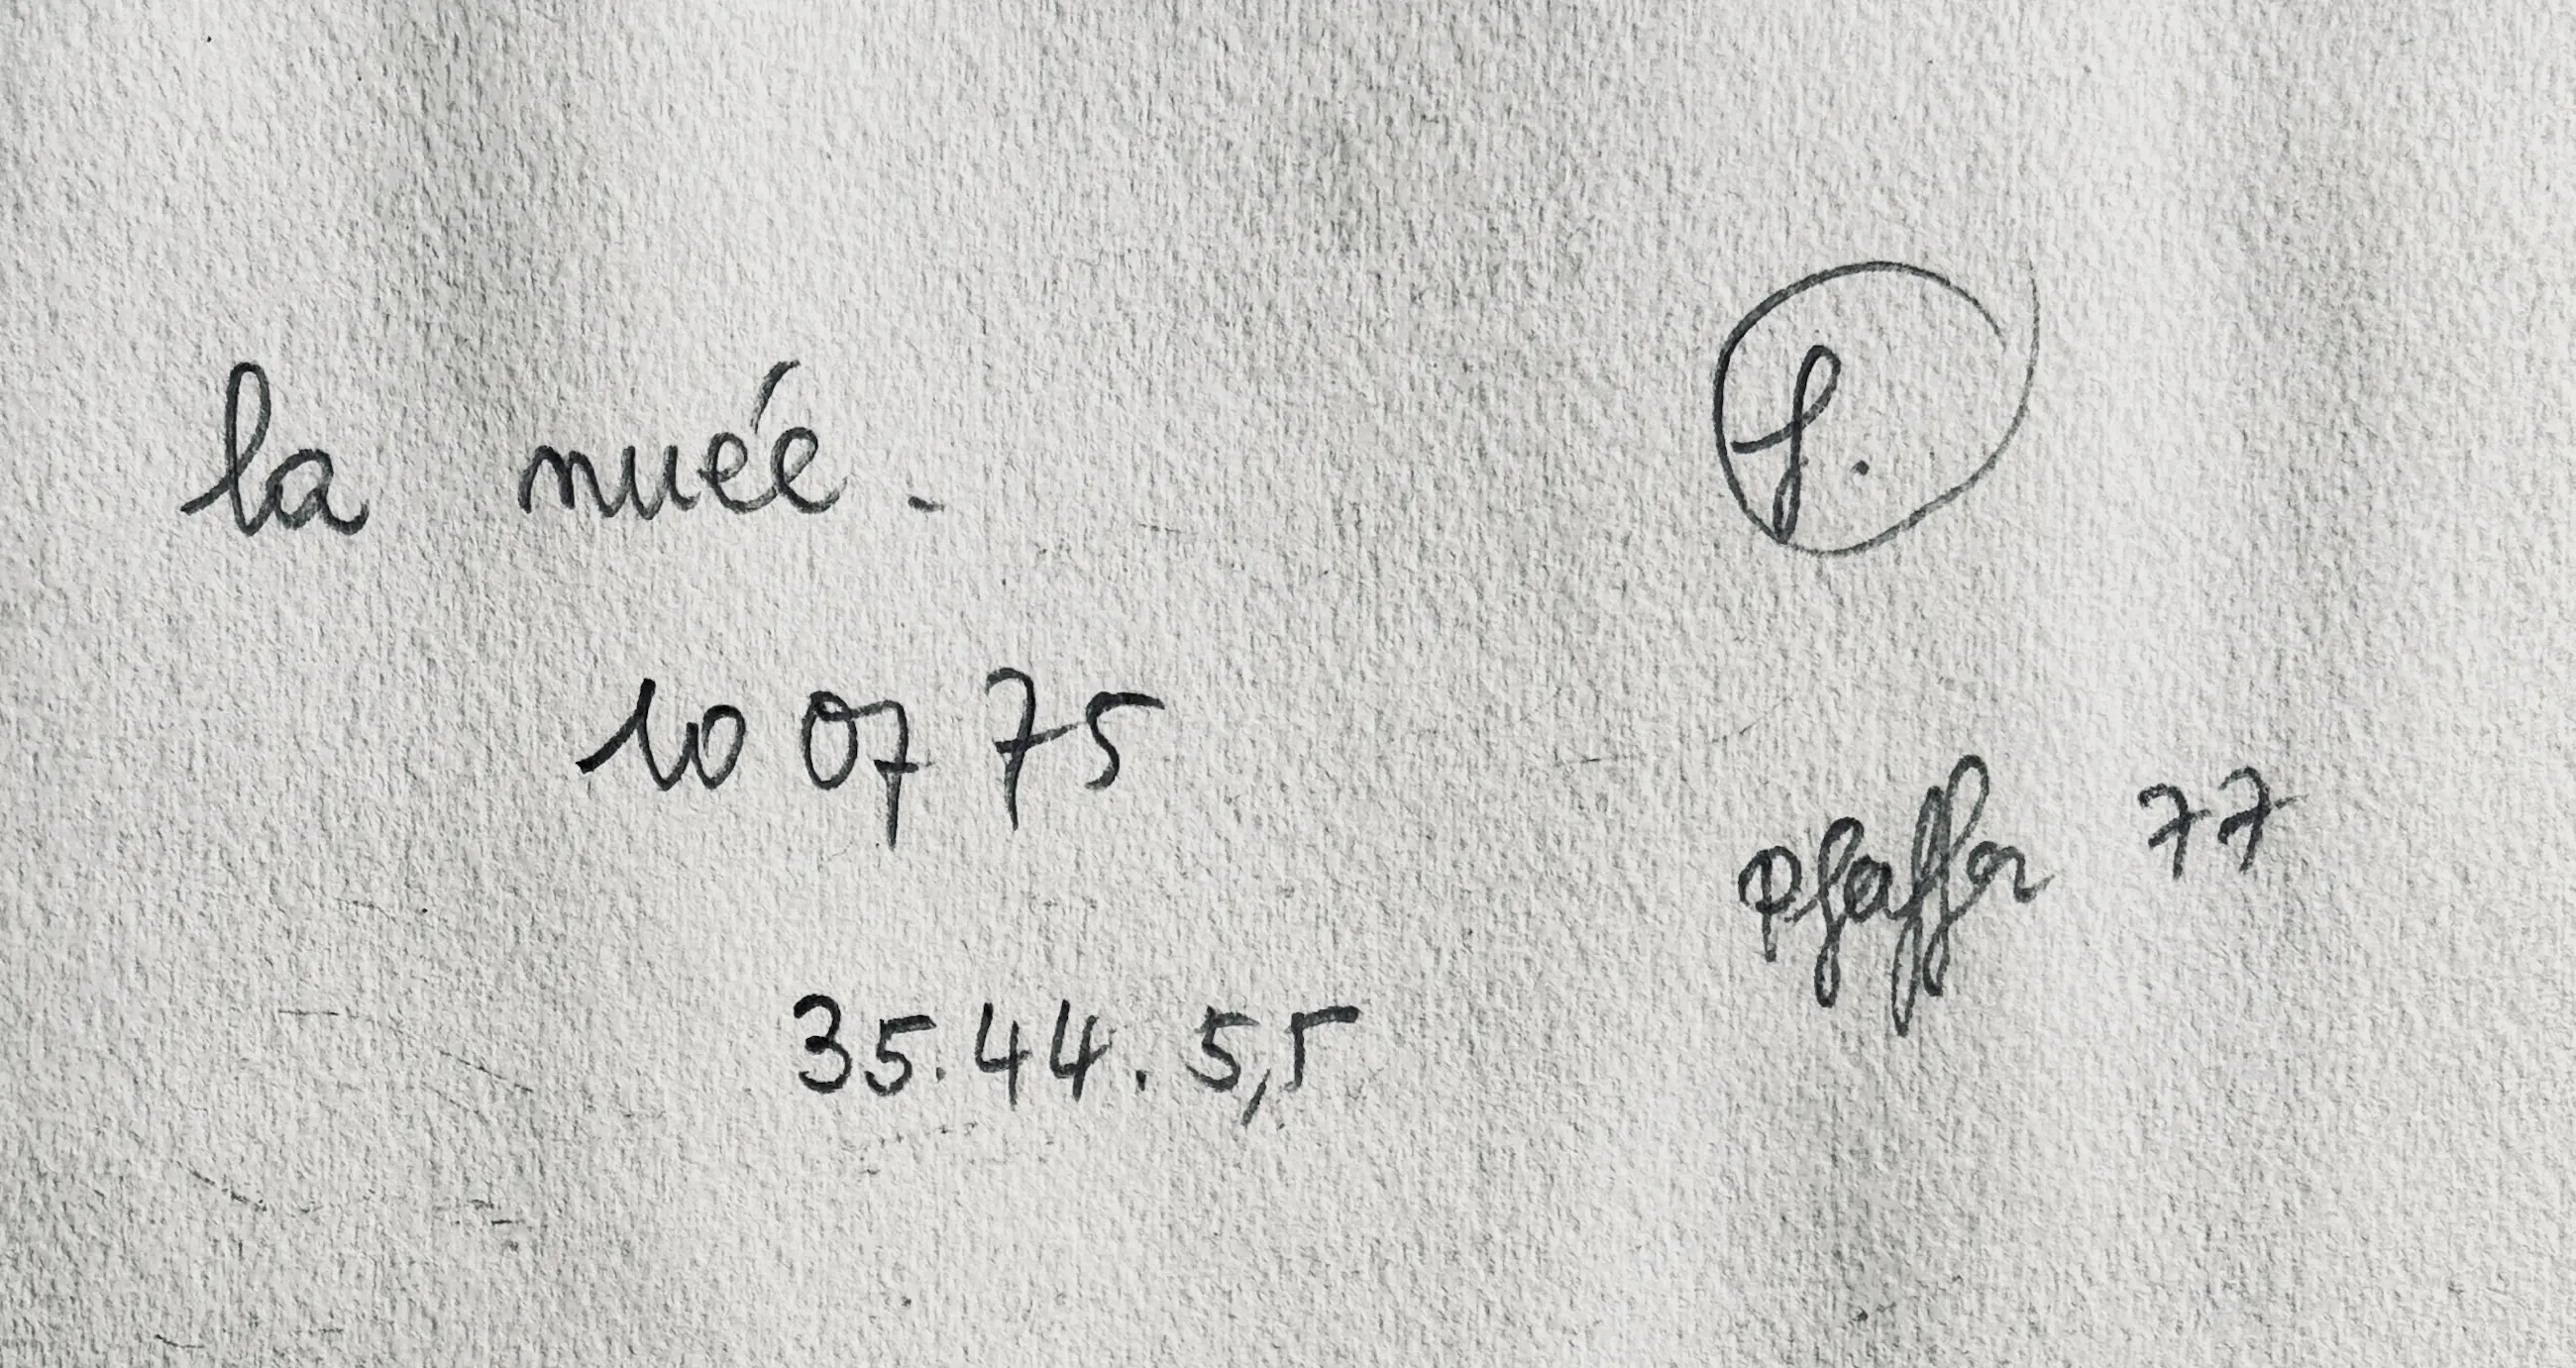 la nuée.
f.
10 07 75
Pfaffer 77
35.44.5,5